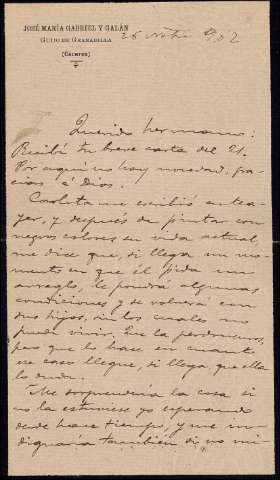 JOSÉ MARÍA GABRIEL Y GALÁN
GUIJO DE GRANADILLA
(Cáceres)
26 Novbre 902
Querido hermano:
Recibí tu breve carta del 21.
Por aquí no hay novedad, gra-
cias á Dios.
Carlota me escribió antea-
yer, y después de pintar con
negros colores su vida actual,
me dice que, si llega un mo-
mento en que él pida un
arreglo, le pondrá algunas
condiciones y se volverá con
sus hijos, sin los cuales no
puede vivir. Que la perdonemos,
pero que lo hace en cuanto
ese caso llegue, si llega, que ella
lo duda.
Me sorprendería la cosa si
no la estuviese yo esperando
desde hace tiempo, y me in-
dignaría también si no mi-